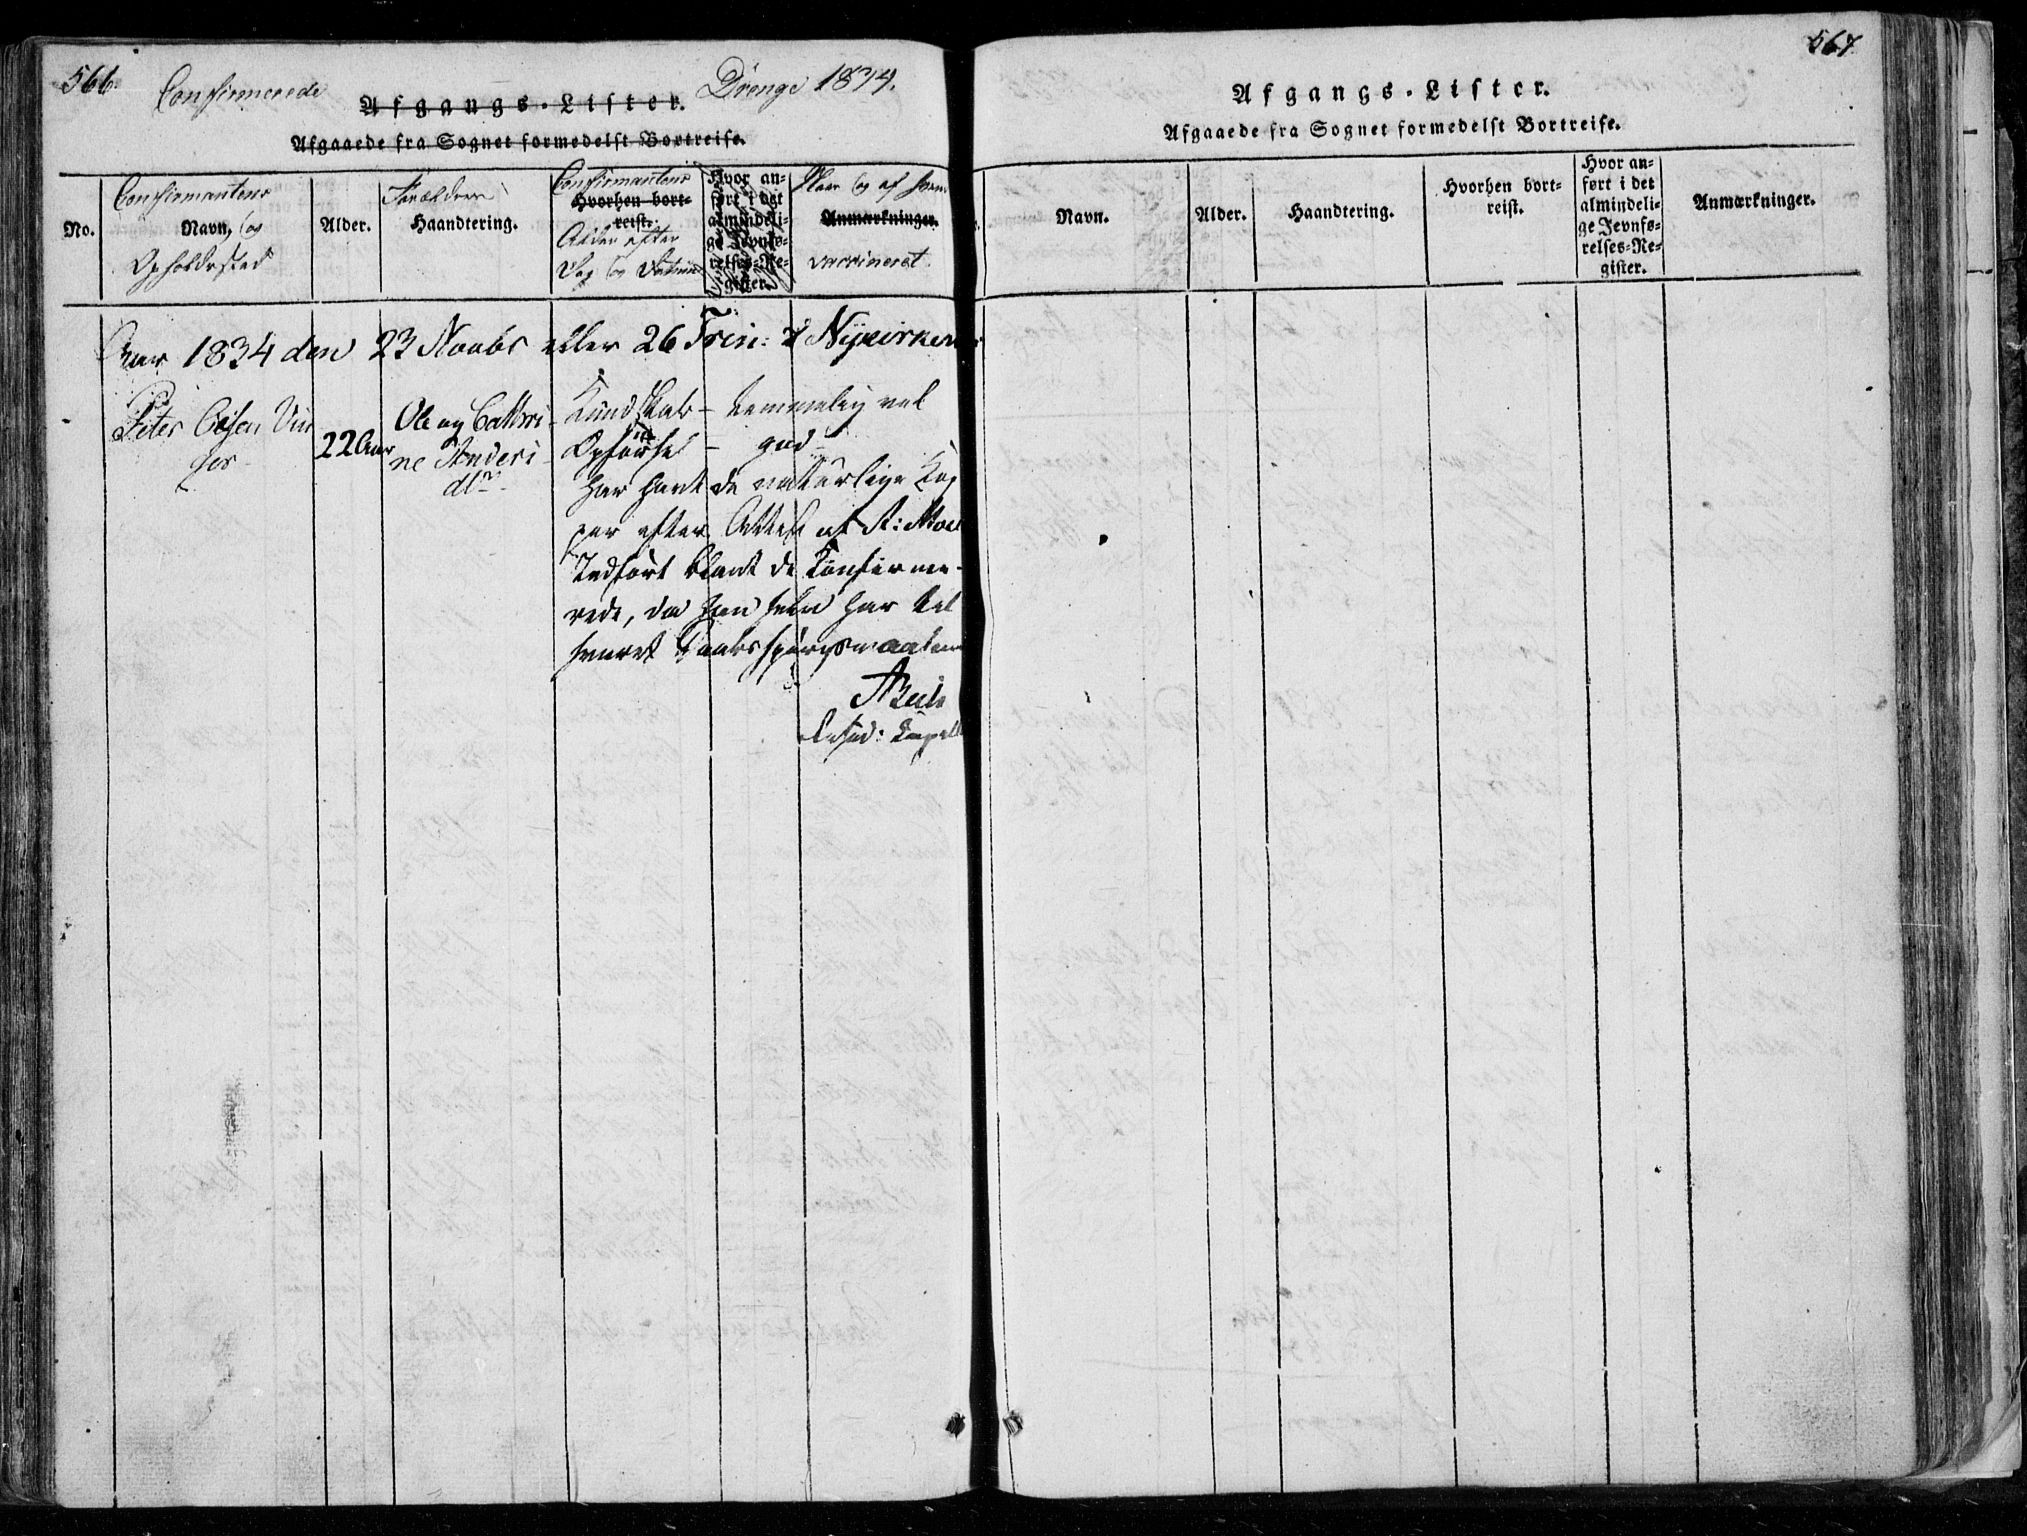 566.
Confirmerede
Drenge 1834.
Afgangs-Lister.
Afgaaede fra Sognet formedelst Bortreise.
No.
Confirmantens
Navn, og
Opholdssted
Alder.
Forældres
Haandtering.
Confirmantens
Hvorhen bort-
reist.
Alder efter
Dag og Datum
Hvor an-
ført i det
almindeli-
ge Jevnfø-
relses-Re-
gister.
Naar og af hvem
Anmærkninger.
vaccineret.
Aar 1834 den 23 Novbr eller 26 Trin: i Nykirken
Peter Olsen
22 Aar
Ole og Cathri-
ne
Kundskab - temmelig vel
Opførsel - god
Har havt de naturlige Kop
per efter Attest af A: Moe
Indført blant de Konfirme-
rede, da han selv har be
svaret Daabsspørgsmaalene
567.
Afgangs-Lister.
Afgaaede fra Sognet formedelst Bortreise.
Navn.
Alder.
Haandtering.
Hvorhen bort-
reist.
Hvor an-
ført i det
almindeli-
ge Jevnfø-
relses-Re-
gister.
Anmærkninger.